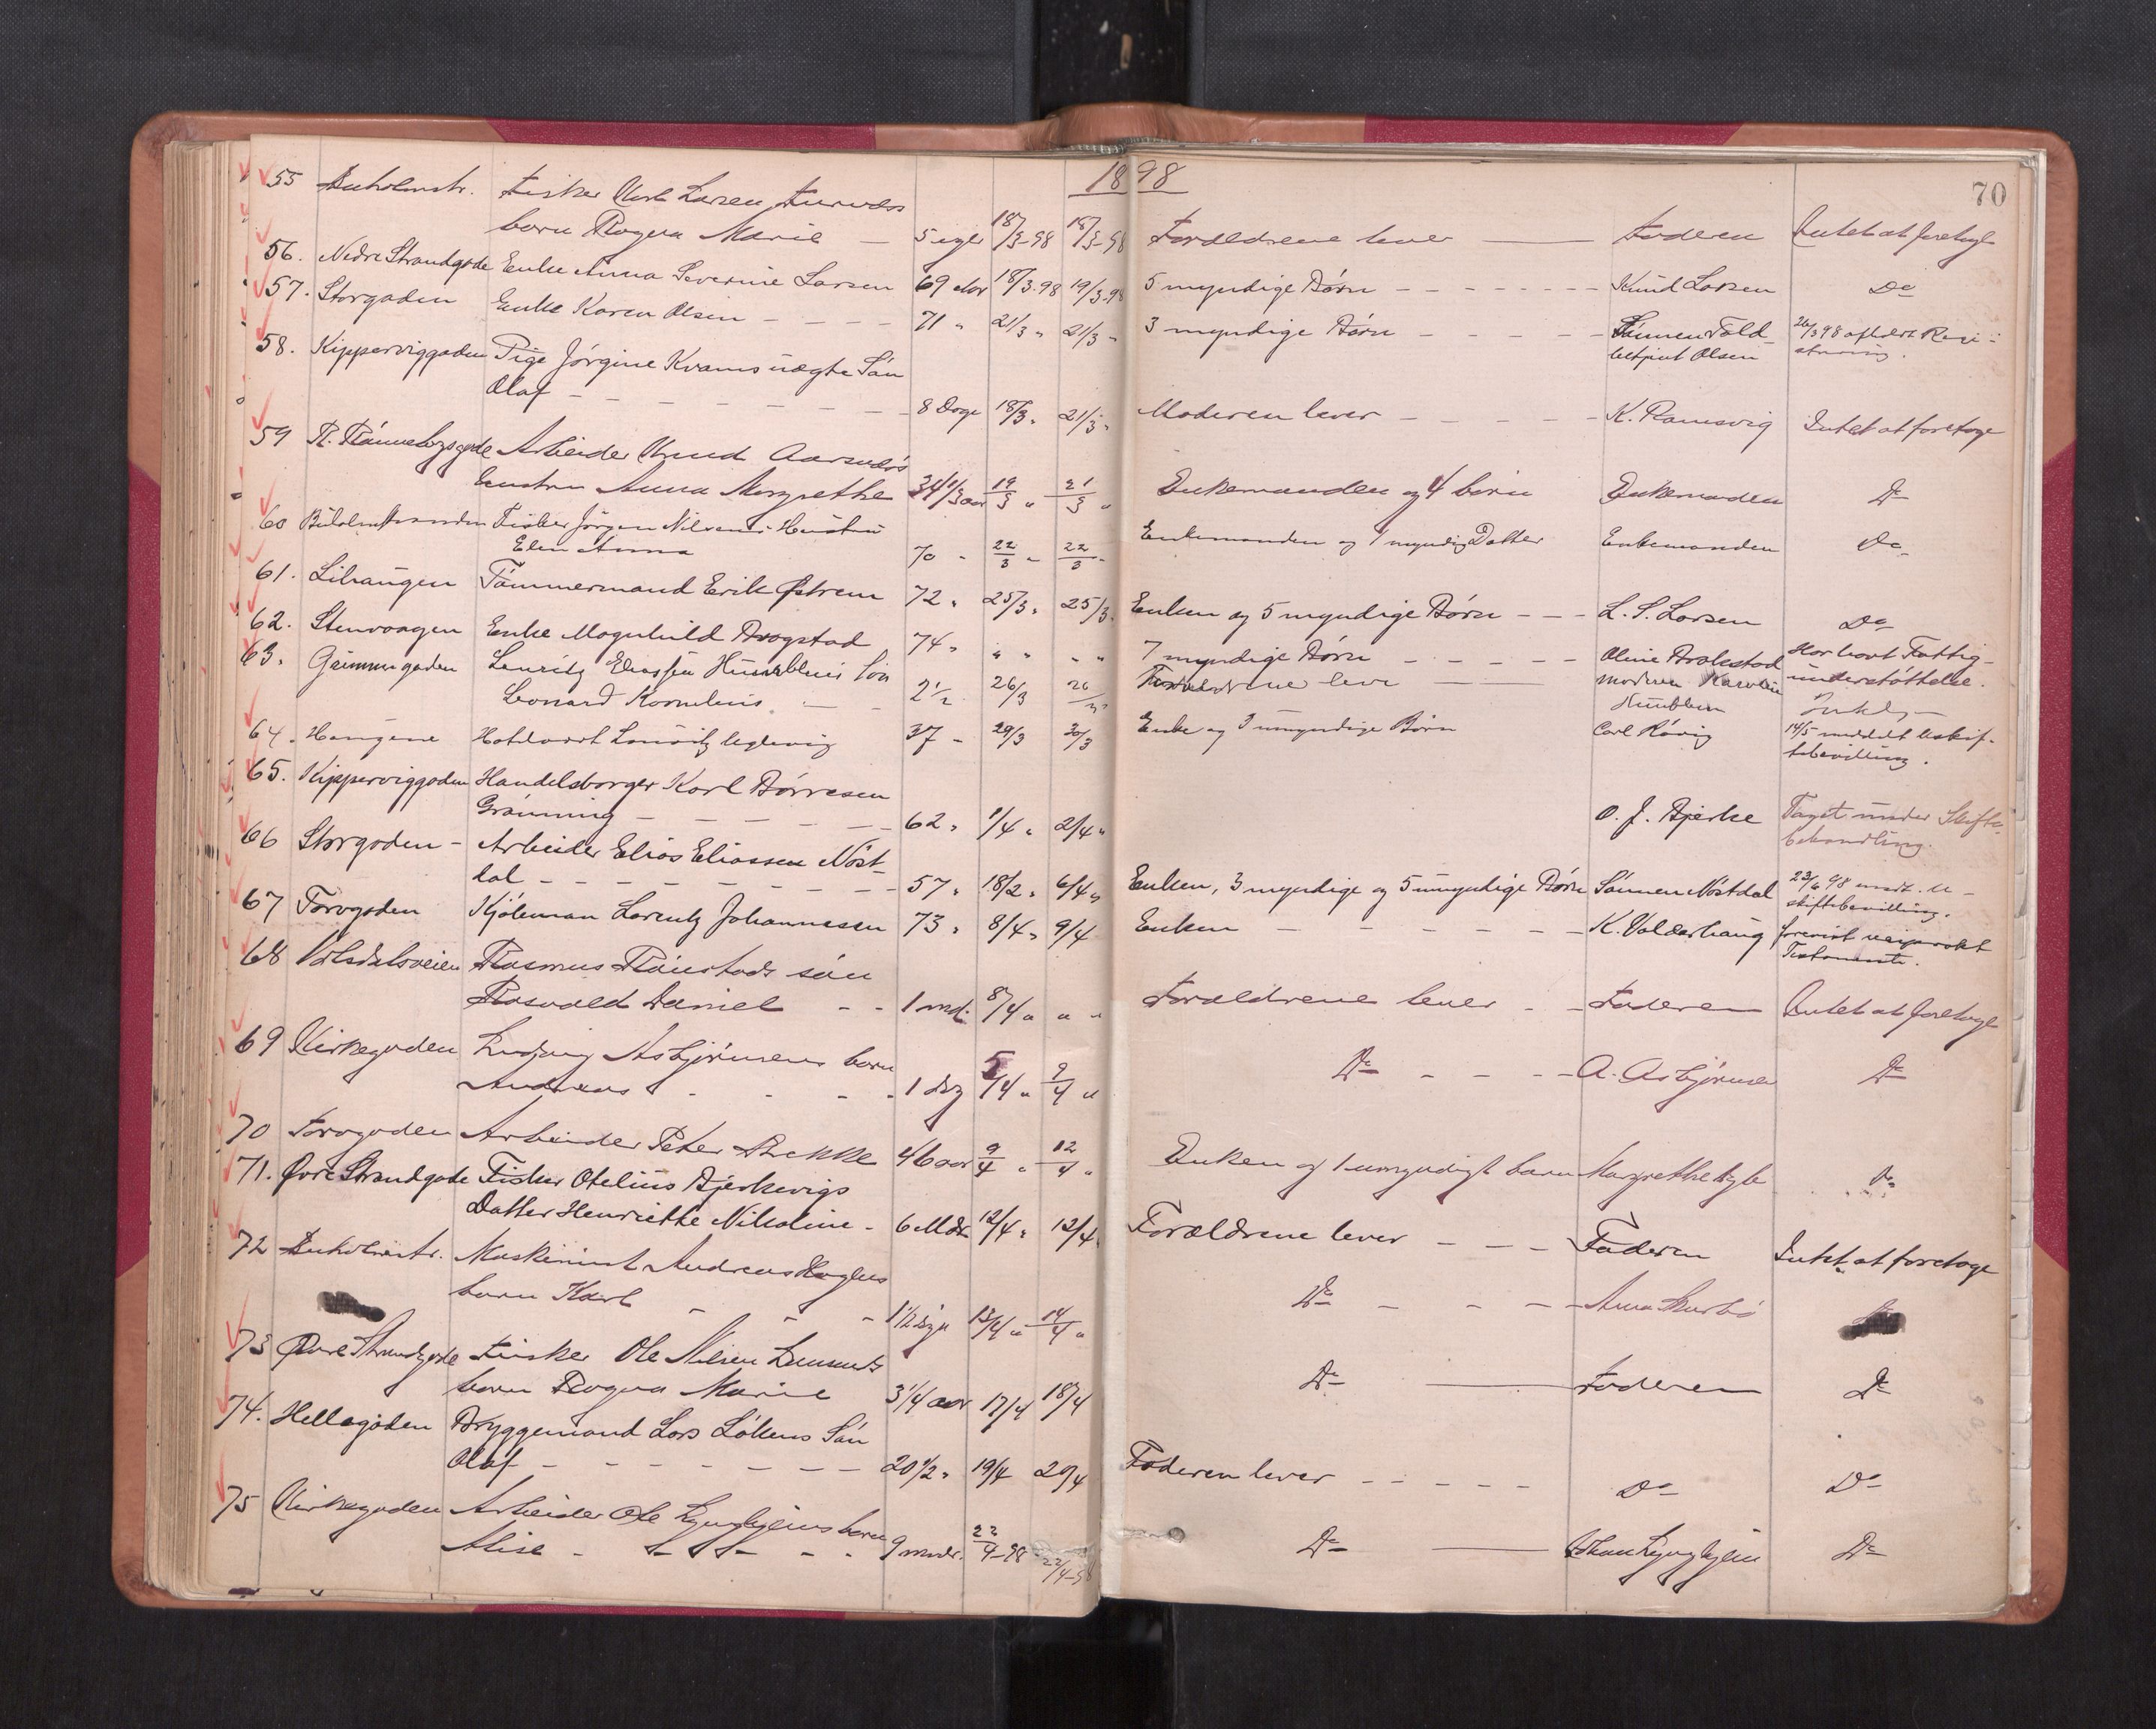 1898
70
55 Buholmstr. Fisker Karl Larsen Furnæs
barn Ragna Marie — 5 uger 18/3-98 18/3-98 Forældrene lever — Faderen Intet at foretage
56. Nedre Strandgade Enke Anna Severine Larsen 69 Aar 18/3.98 19/3.98 5 myndige Børn - - - - Knud Larsen Do
57. Storgaden Enke Karen Olsen - - - - 71 " 21/3 " 21/3 " 3 myndige Børn - - - - Sønnen Told-
betjent Olsen 26/3 98 afholdt Regi-
strering.
58. Kipperviggaden Pige Jørgine Kvams uægte Søn
Olaf - - - - 8 Dage 18/3 " 21/3 " Moderen lever - - - - K. Ramsvig Intet at foretage
59 R. Rønnebergsgade Arbeider Knud Aarsnæs
hustru Anna Margrethe 34 1/3 aar 19/3 " 21/3 " Enkemanden og 4 børn Enkemanden Do
60 Buholmstranden Fisker Jørgen Nilsens Hustru
Elen Anna 70 - 22/3 - 22/3 - Enkemanden og 1 myndig Datter Enkemanden Do
61. Lihaugen Tømmermand Erik Østrem 72 " 25/3 " 25/3 " Enken og 5 myndige Børn - - - L. S. Larsen Do
62. Stenvaagen Enke Magnhild Brogstad 74 " " " " " 7 myndige Børn - - - - Oline Brokstad Har havt Fattig-
understøttelse.
63. Grimmergaden Lauritz Eliassen Humblens Søn
Leonard Kornelius 2 1/2 26/3 26/3 Forældrene leve — Moderen Karoline
Humblen Intet
64. Haugene Hotelvært Lauritz Ugelvig 37 - 29/3 30/3 Enke og 3 umyndige Børn Carl Rövig 14/5 meddelt uskif-
tebevilling.
65. Kipperviggaden Handelsborger Karl Børresen
Grønning - - - - 62 " 1/4 " 2/4 " O. J. Bjerke Taget under Skifte-
behandling.
66 Storgaden - Arbeider Elias Eliassen Nøst-
dal - - - - 57 " 18/2 " 6/4 " Enken, 3 myndige og 5 umyndige Børn Sønnen Nøstdal 23/6 98 medt. u-
skiftebevilling.
67 Torvgaden Kjøbmann Lorentz Johannesen 73 " 8/4 " 9/4 Enken - - - - K. Valderhaug forevist
Testamente.
68 Volsdalsveien Rasmus Rønstads søn
Rasvald Daniel - - 1 md. 8/4 " " " Forældrene lever - - Faderen Intet at foretage
69 Kirkegaden Ludvig Asbjørnsens barn
Andreas - - - - 1 dag 5/4 " 9/4 " Do - - - - A. Asbjørnsen Do
70 Torvgaden Arbeider Peter Brekke 46 aar 9/4 " 12/4 " Enken og 1 umyndigt barn Margrethe Do
71. Øvre Strandgade Fisker Otelius Bjerkevigs
Datter Henriette Nikoline - 6 Mdr 12/4 " 12/4 " Forældrene lever - - - Faderen Intet at foretage
72 Buholmstr. Maskinist Andreas
barn Karl - - - 1 1/2 dage 13/4 " 14/4 " Do - - - - Anna
73 Øvre Strandgade Fisker Ole Nilsen
barn Ragna Marie 3 1/4 aar 17/4 18/4 Do — Faderen Do
74. Hellegaden Bryggemand Lars Løkens Søn
Olaf - - - - 20 1/2 " 19/4 20/4 Faderen lever - - - - Do Do
75 Kirkegaden Arbeider Ole Lynghjems barn
Alise - - - - 9 mdr. 22/4-98 22/4-98 Do — Johan Lynghjem Do